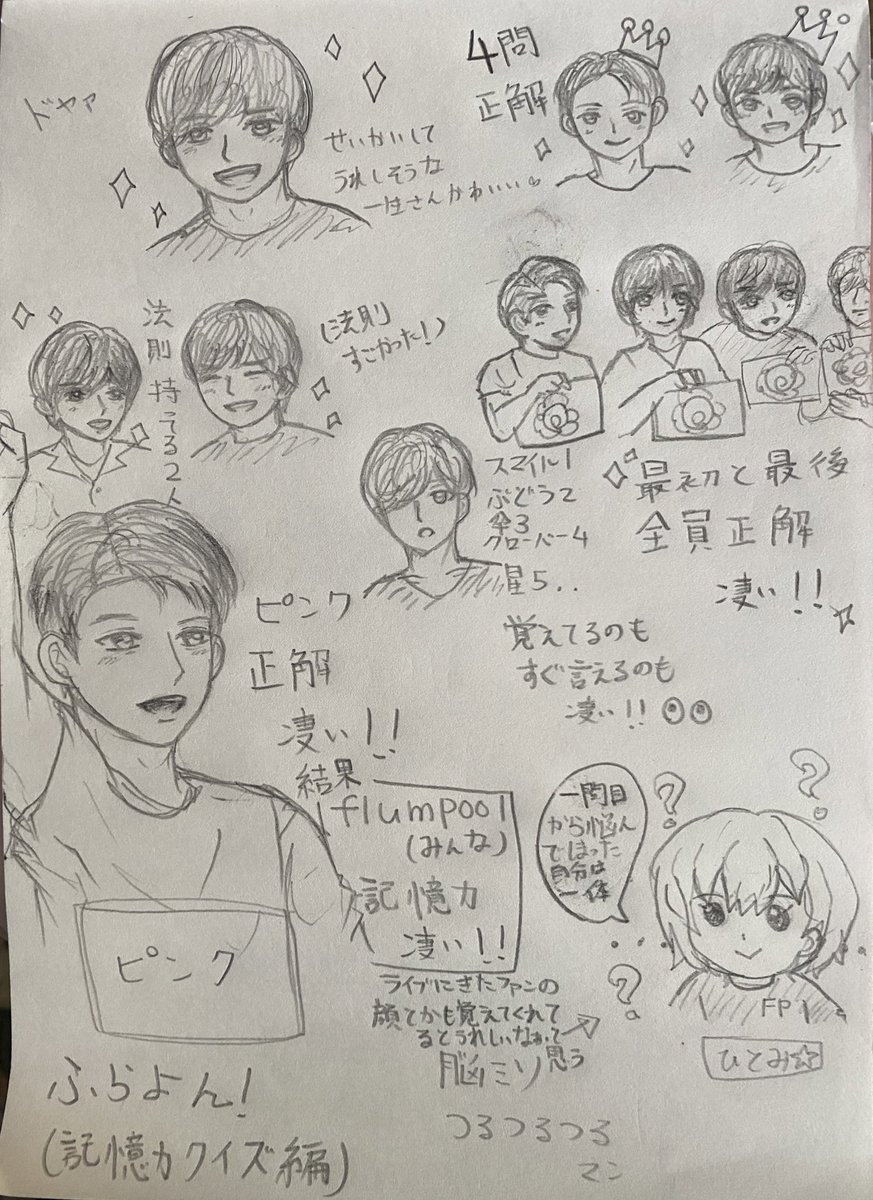 ドヤァ
せいかいして
うれしそうな
一生さんかわいい
4問
正解
法則持てる2人
(法則
すごかった!)
スマイル1
ぶどう2
傘3
クローバー4
星5..
最初と最後
全員正解
凄い!!
覚えてるのも
すぐ言えるのも
凄い!!
ピンク
正解
凄い!!
結果
flumpool
(みんな)
記憶力
凄い!!
ピンク
一問目
から悩ん
でしまった
自分は
一体
ライブにきたファンの
顔とかも覚えてくれて
るとうれしいなぁって
思う
FP
ひとみ☆
脳ミソ
つるつるつる
マン
ふらよん!
(記憶力クイズ編)